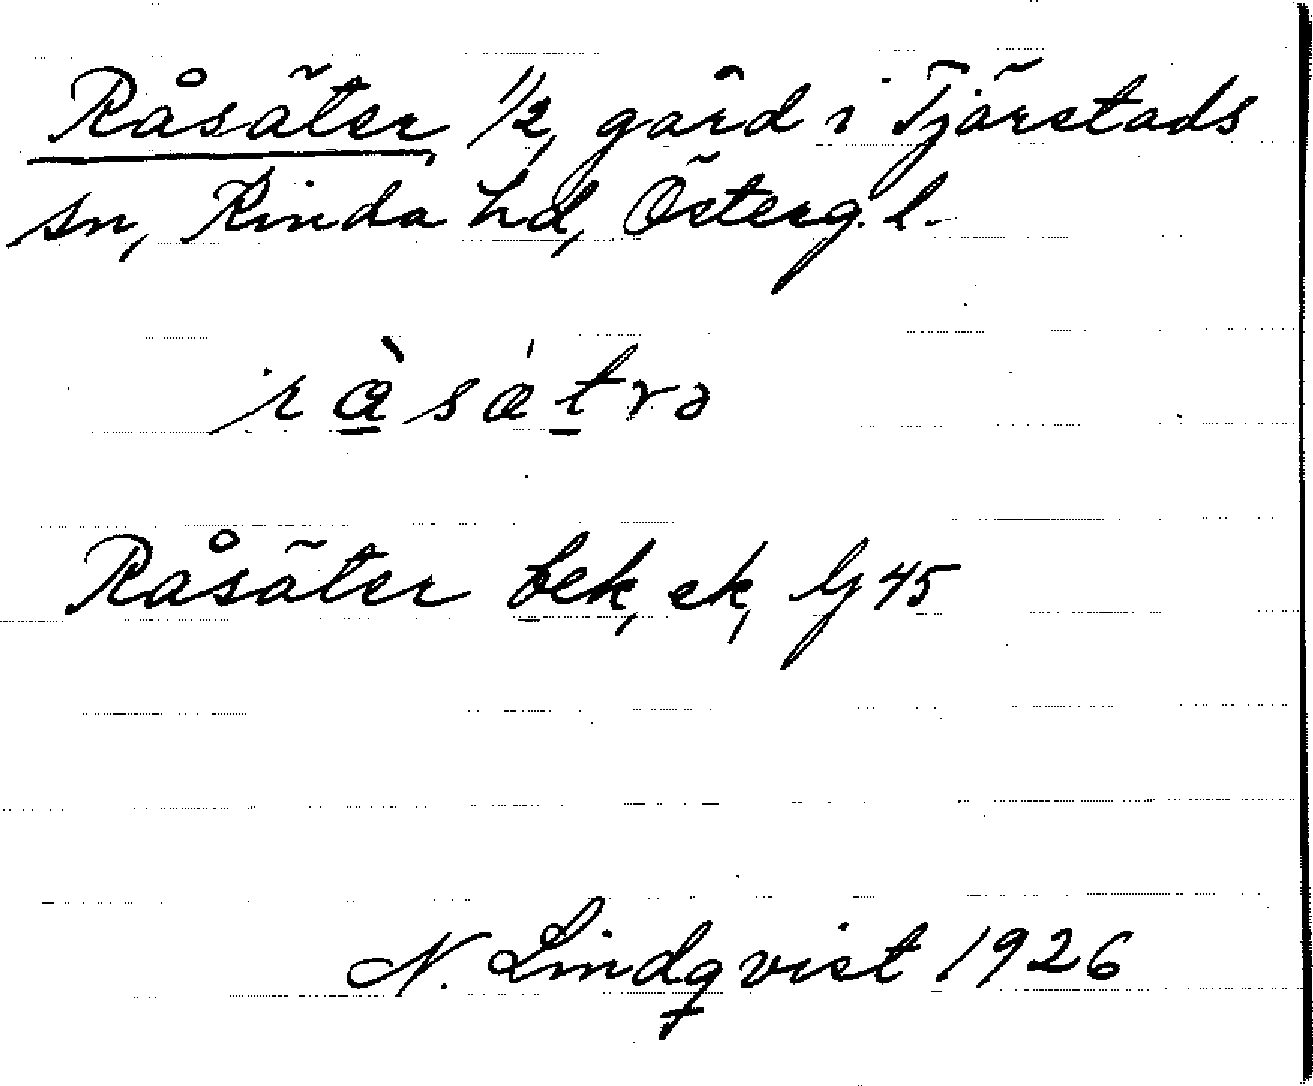 Råsäter 1/2, gård i Tjärstads
sn, Kinda hd, Österg. l.
ràsátrə
Råsäter bek, ek, lj 45
N. Lindqvist 1926